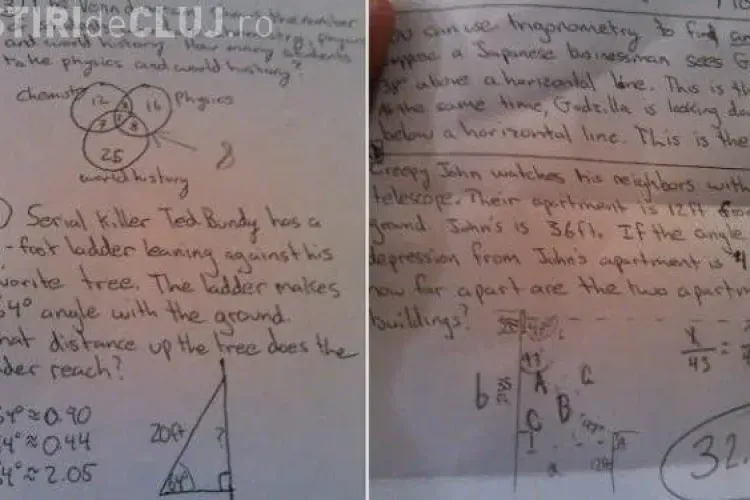 STIRIdeCLUJ.ro
the number
and world history. How many students
take physics and world history?
Chemistry
12
16
Physics
8
25
world history
Serial Killer Ted Bundy has a
-foot ladder leaning against his
vorite tree. The ladder makes
64° angle with the ground.
hat distance up the tree does the
dder reach?
64° ≈ 0.90
4° ≈ 0.44
4° ≈ 2.05
20ft
?
64°
you can use trigonometry to find an
suppose a Japanese businessman sees G
38° above a horizontal line. This is th
At the same time, Godzilla is looking dow
below a horizontal line. This is the
Creepy John watches his neighbors with
telescope. Their apartment is 12ft from
ground. John's is 36ft. If the angle
depression from John's apartment is
how far apart are the two apartm
buildings?
x
43
=
b
A
C
B
C
a
12ft
32.